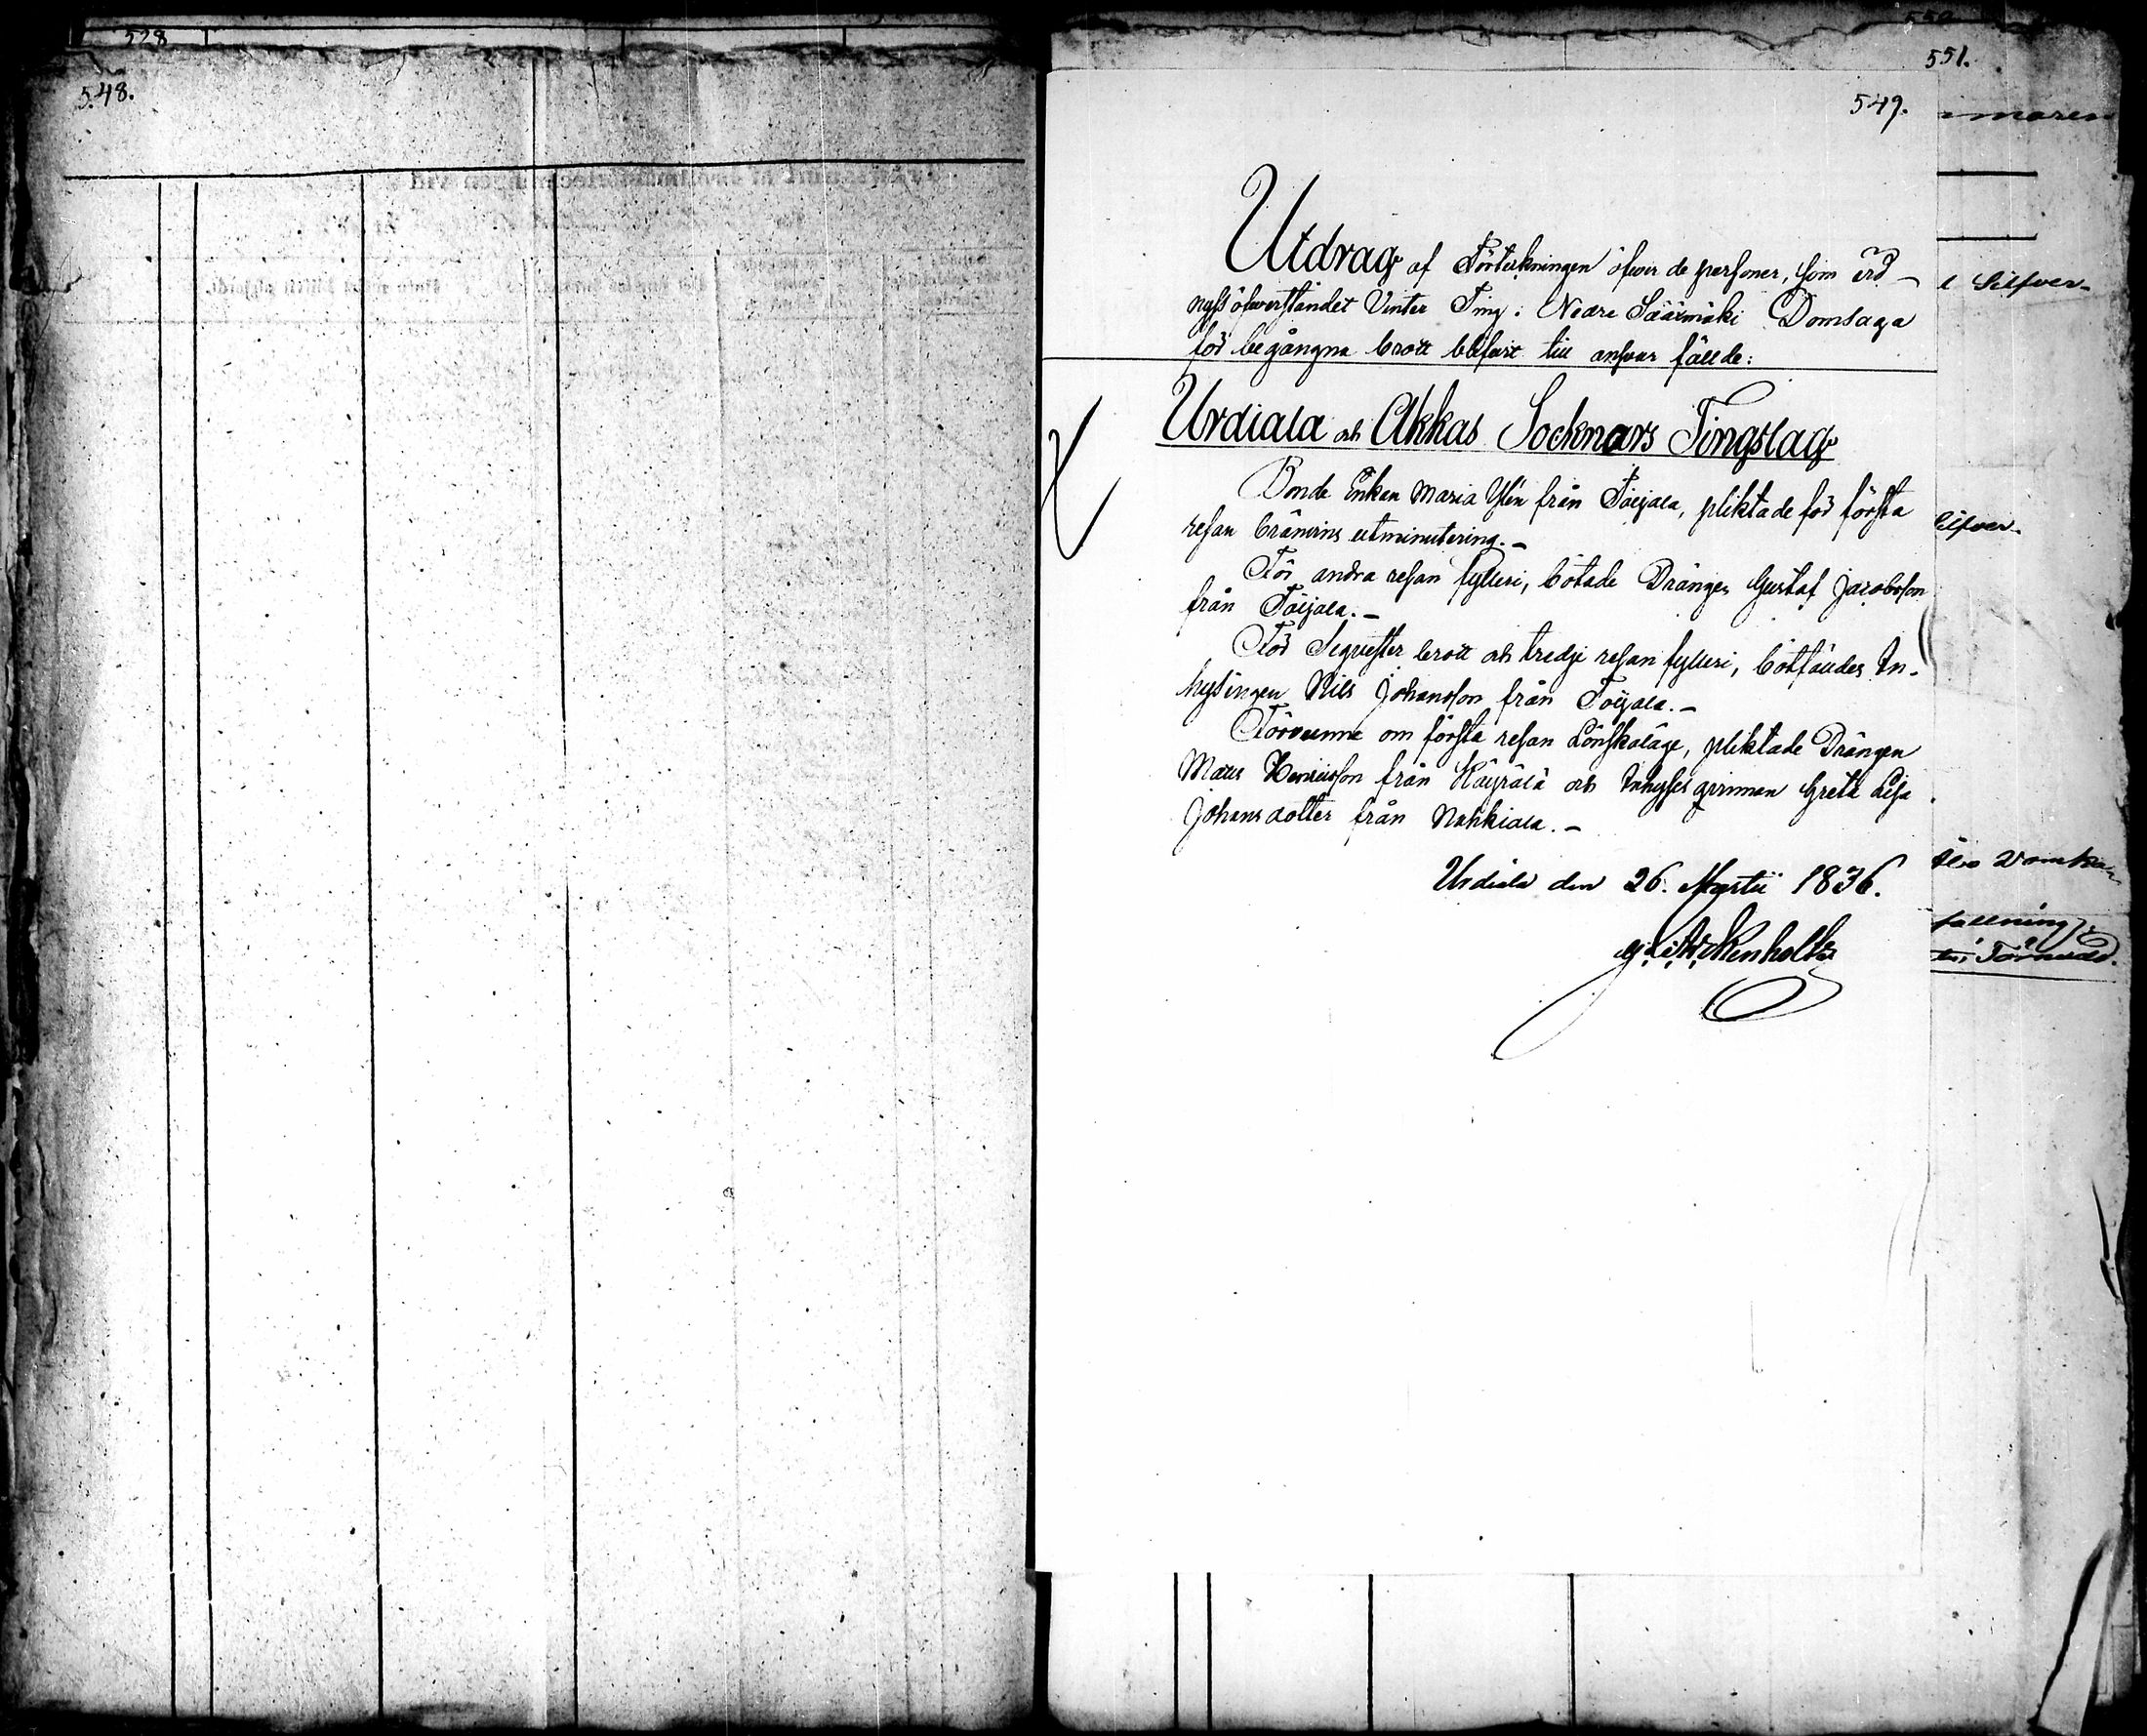 528
548.
550
551.
549.
Utdrag af Förteckningen öfwer de personer, som vid
nyss öfwerståndet Vinter Ting i Nedre Sääxmäki Domsaga
för begångna brott blifwit till answar fällde:
Urdiala och Akkas Socknars Tingslag
Bonde Enkan Maria Ylén från Toijala, pliktade för första
resan bränvins utminutering. –
För andra resan fylleri, bötade Drängen Gustaf Jacobsson
från Toijala. –
För Seqvester brott och tredje resan fylleri, bötfäldes In-
hysingen Nils Johansson från Toijala. –
Förvunne om första resan Lönskaläge, pliktade Drängen
Matts Henricsson från och Inhysesqvinnan Greta Lisa
Johansdotter från Nahkiala. –
Urdiala den 26. Martii 1836.
maren
Silfver-
Silfver-
fallning